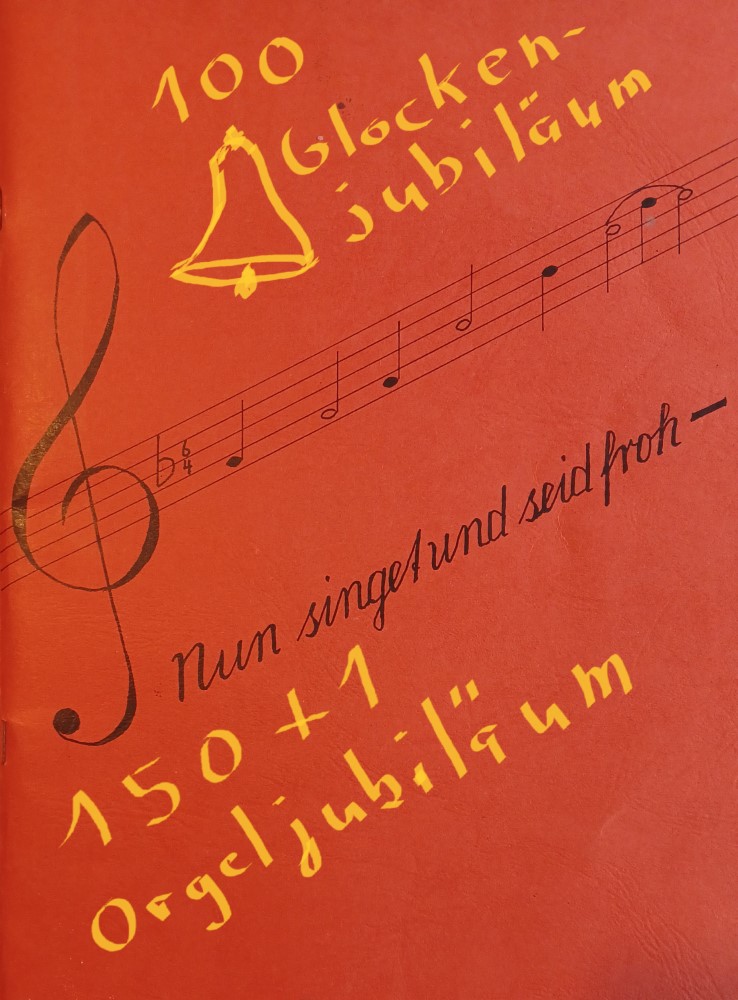 100
Glocken-
jubiläum
6
4
Nun singet und seid froh –
150 + 1
Orgeljubiläum